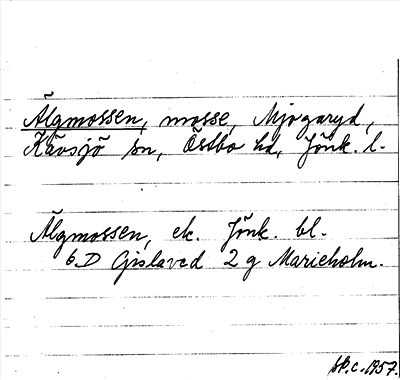 Älgmossen, mosse, Mjogaryd,
Kävsjö sn, Östbo hd, Jönk. l.
Älgmossen, ek. Jönk. bl.
6 D Gislaved 2 g Marieholm.
sk. c. 1957.